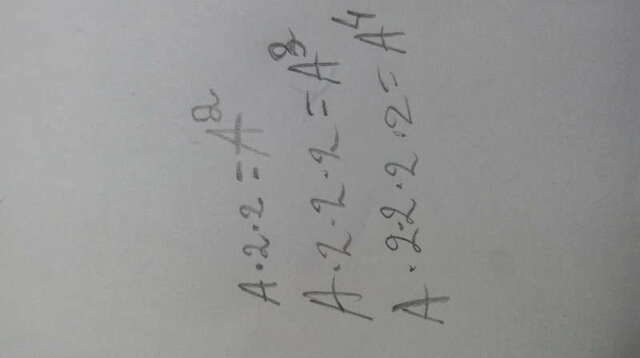 A·2·2=A²
A·2·2·2=A³
A·2·2·2·2=A⁴